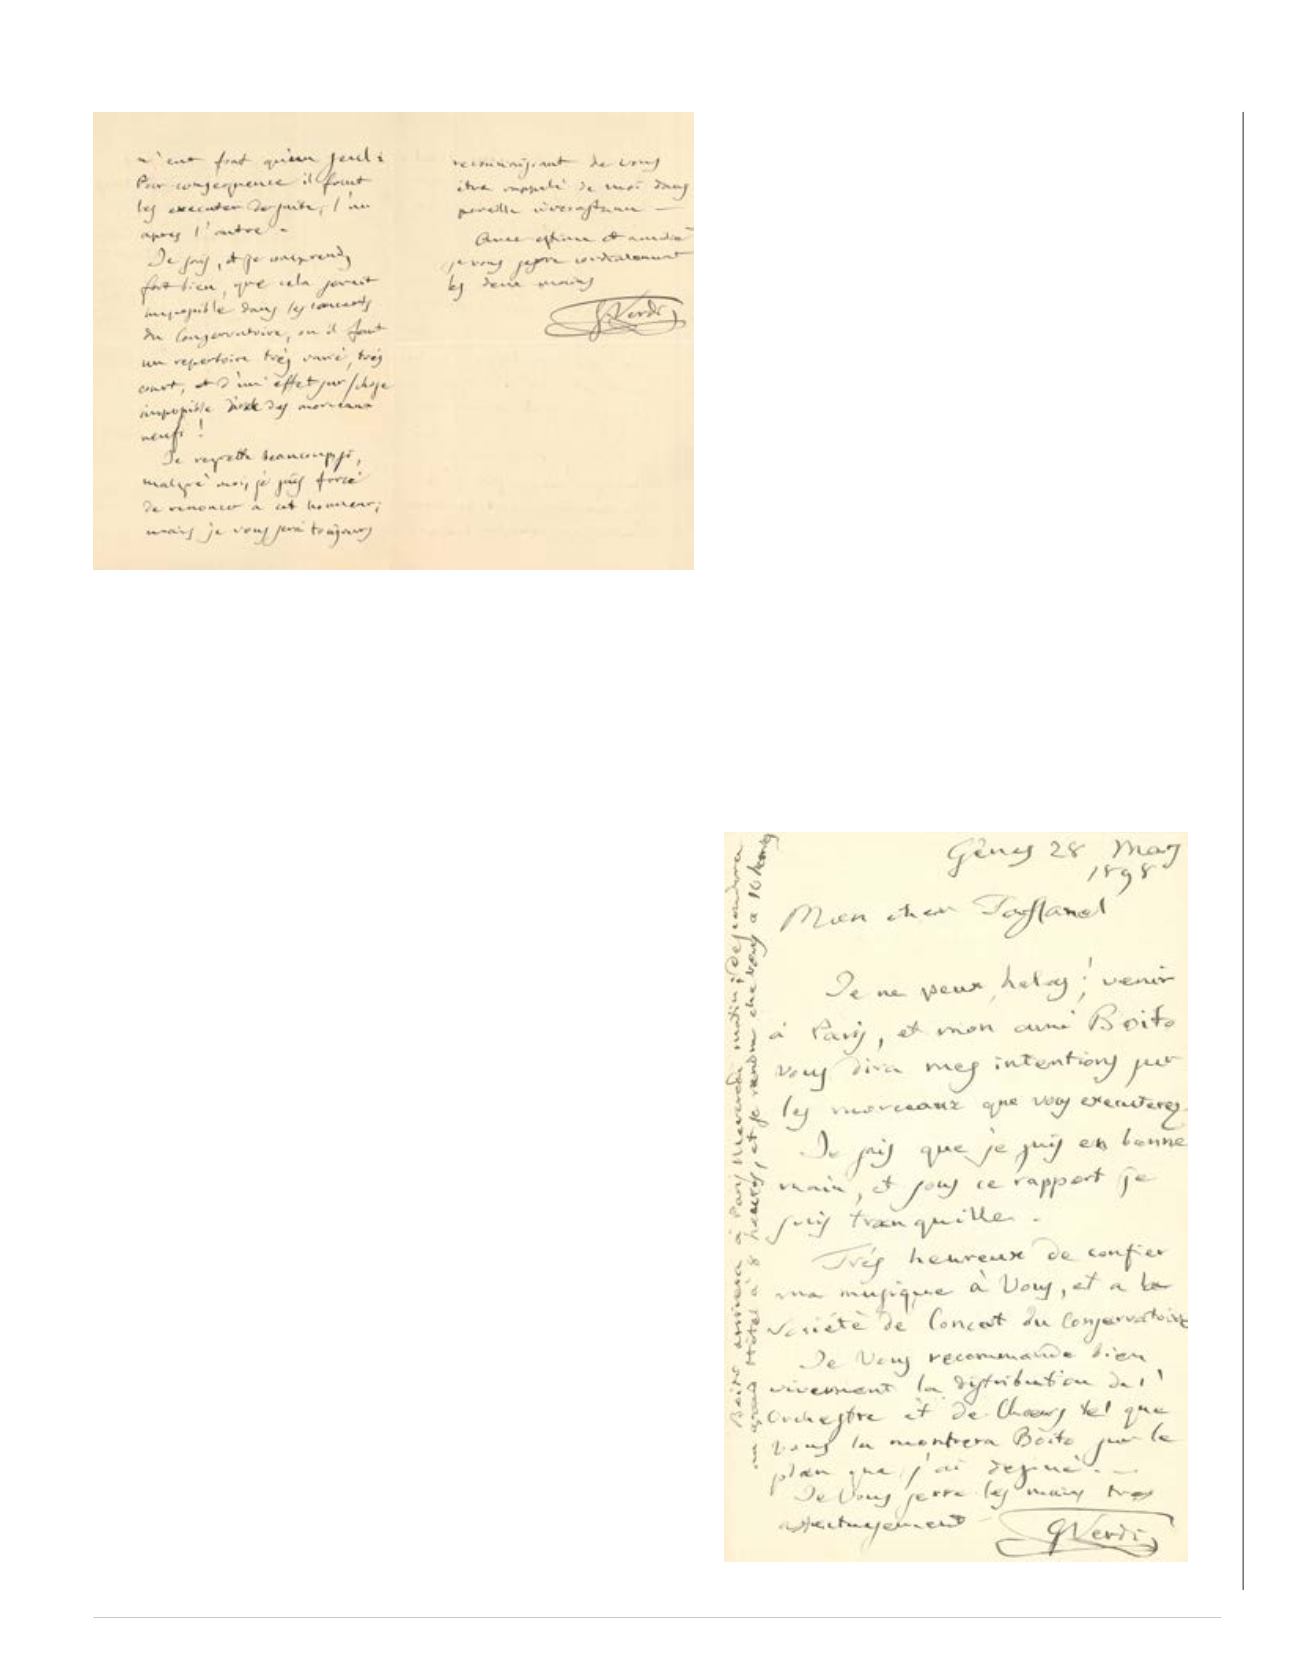 n'ent font qu'un seul:
Par consequence il faut
les executer de suite, l'un
apres l'autre.
Je sais, et je comprends
fort bien, que cela serait
impossible dans les concerts
du Conservatoire, ou il faut
un repertoire très varié, très
court, et d'un effet sur/chose
impossible des morceaux
neufs!
Je regrette beaucoup si,
malgré moi, je suis forcé
de renoncer a cet honneur;
mais je vous serai toujours
reconnaissant de vous
être rappelé de moi dans
pareille circonstance —
Avec estime et amitié
je vous serre cordialement
les deux mains
G. Verdi
Gênes 28 Mars
1898
Mon cher Taffanel
Je ne peux, helas! venir
à Paris, et mon ami Boito
vous dira mes intentions sur
les morceaux que vous executerez.
Je sais que je suis en bonne
main, et sous ce rapport je
suis tranquille.
Très heureux de confier
ma musique à Vous, et a la
Société de Concert du Conservatoire
Je Vous recommande bien
vivement la distribution de l'
Orchestre et de Choeurs tel que
Vous la montrera Boito sur le
plan que j'ai dessiné. —
Je Vous serre les mains tres
affectuesement
G Verdi
Boito arrivera à Paris Mercredi matin; descendra
au grand Hôtel à 8 heures, et se rendra chez vous a 10 heures